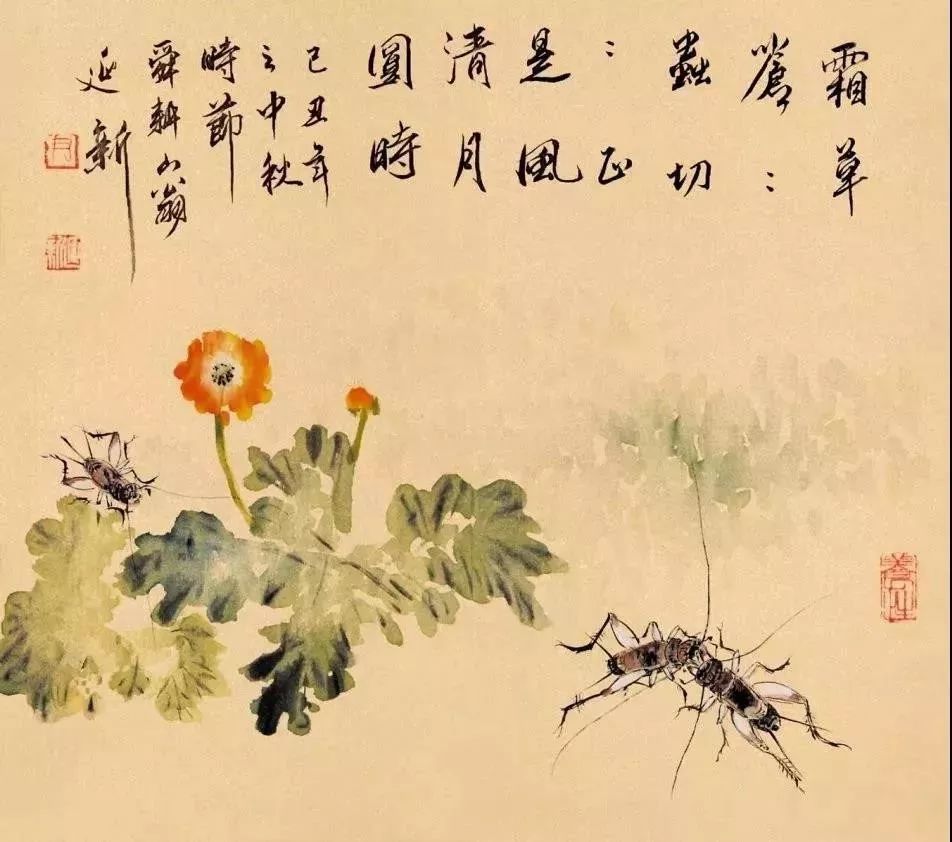 霜草
蒼：
蟲切
：正
是風
清月
圓時
己丑年
之中秋
時節
舜耕山翁
延新